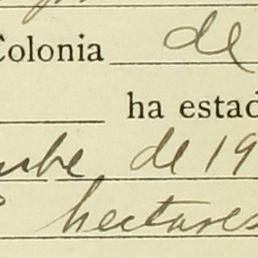 Colonia de
ha estad
de 19
hectares